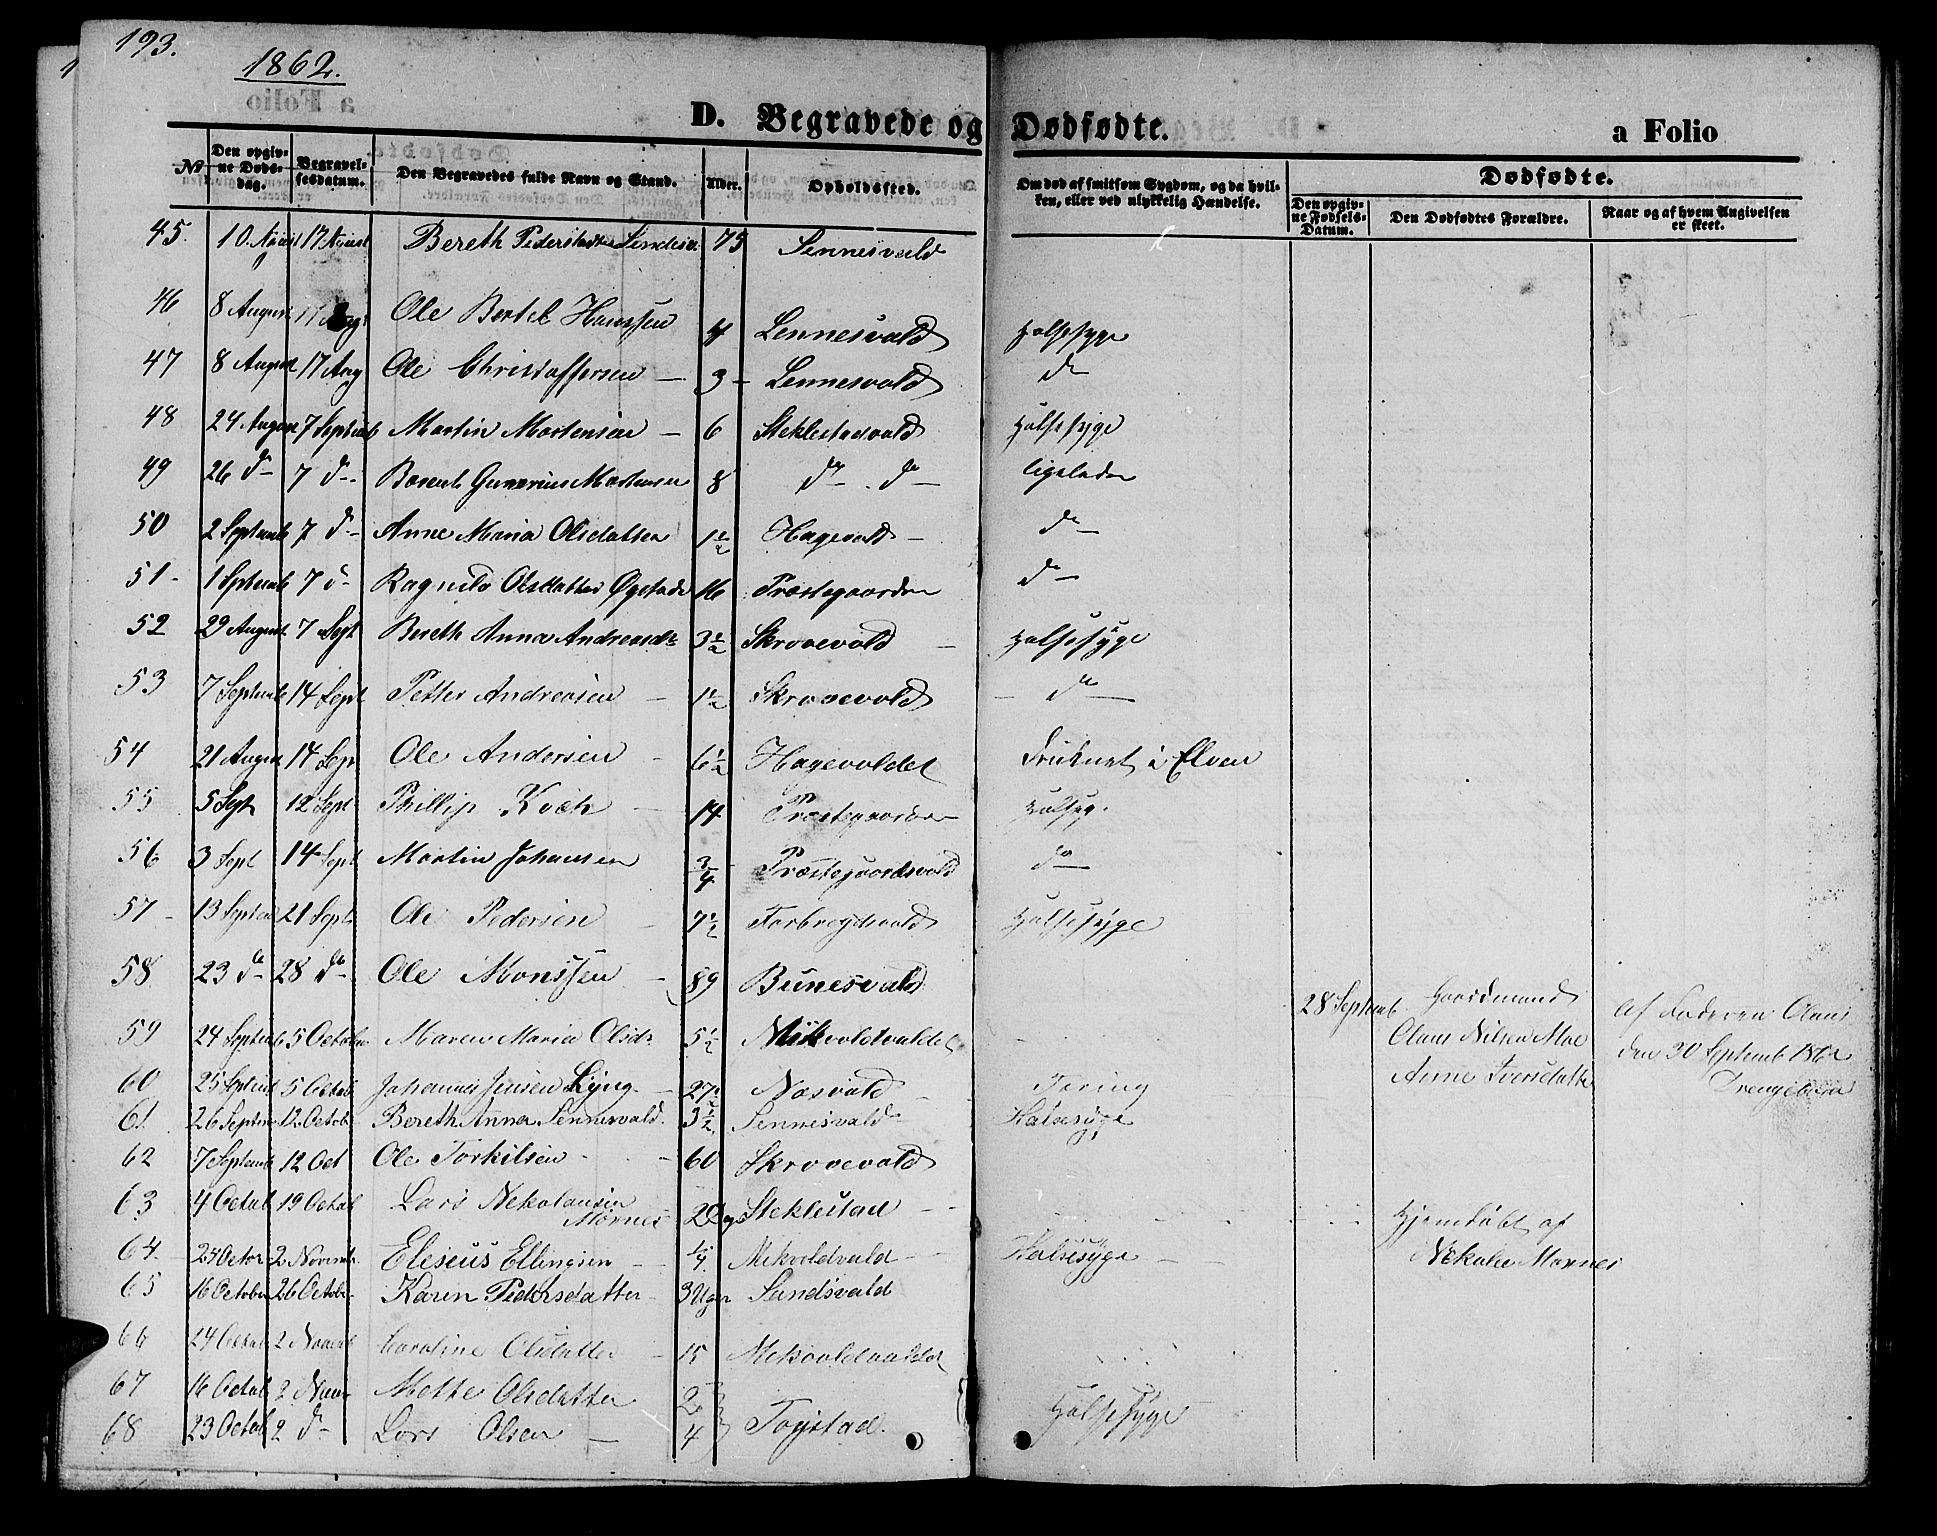 193.
1862.
D. Begravede og Dødfødte. a Folio
No Den opgivne Dødsdag. Begravelsesdatum. Den Begravedes fulde Navn og Stand. Alder. Opholdssted. Om død af smitsom Sygdom, og da hvilken, eller ved ulykkelig Hændelse. Dødfødte. Den opgivne Fødsels-Datum. Den Dødfødtes Forældre. Naar og af hvem Angivelsen er skeet.
45. 10 August 17 August Bereth 75 Sennesvald
46 8 August 17 Aug Ole Bertel Hanssen 4 Lennesvald Halssyge
47 8 August 17 Aug Ole Christoffersen — 3 - Lennesvald do
48 24 August 7 Septemb Martin Mortensen — 6 Steklestadvald Halsesyge
49 26 do 7 do Gunerius Mortensen 8 do . do ligeleden
50 2 Septemb 7 do Anne Maria Olsdatter 1½ Hagevald — do
51 - 1 Septemb 7 do Ragnild Olsdatter Øgstad 16 Præstegaarden do
52 29 August 7 Sept Bereth Anna Andreasdr 3½ Skrovevald — Halsesyge
53 7 Septemb 14 Sept Petter Andreasen — 1½ Skrovevald — do
54 21 August 14 Sept Ole Andersen - 6½ Hagevaldet Druknet i Elven
55 5 Sept 12 Sept Phillip Koch — 14 Præstegaarden Halssyg.
56 3 Sept 14 Sept Martin Johansen ¾ Præstegaardsvald do
57 - 13 Septem 21 Sept Ole Pedersen — 7½ Forbregdsvald Halsesyge
58 23 do 28 do Ole Monssen - 89 Bunesvald
28 Septemb Gaardmand Olaus Nilsen Moe Anne Iversdatter
af Faderen Olaus den 30 Septemb 1862 Drengebarn
59 24 Septemb 5 October Maren Maria Olsdr 5½ Mikvoldvaldet
60 25 Septemb 5 Octob Johannes Jensen Lyng - 27½ Nesvald Tæring
61. 26 Septem 12 Octob Bereth Anna Sennesvald. 3½ Sennisvald Halsesyge
62 7 Septemb 12 Oct Ole Torkilsen 60 Skrovevald
63 4 Octob 19 Octob Lars Nekolaisen Mørnes 2 Dage Steklestad Hjemdøbt af Nekolai Mornes
64. 24 Octor 2 Novemb. Eleseus Ellingsen ¼ Mikvoldvald Halsesyge
65 16 October 26 Octobr Karen Pedersdatter 3 Uger Sundsvald
66 24 Octob 2 Novemb Caroline Olsdatter — 15 Mikvoldvaldet
67 16 Octob 2 Novr Mette Olsdatter 2
68 23 Octob 2 do Lars Olsen — 4 Togstad. Halsesyge